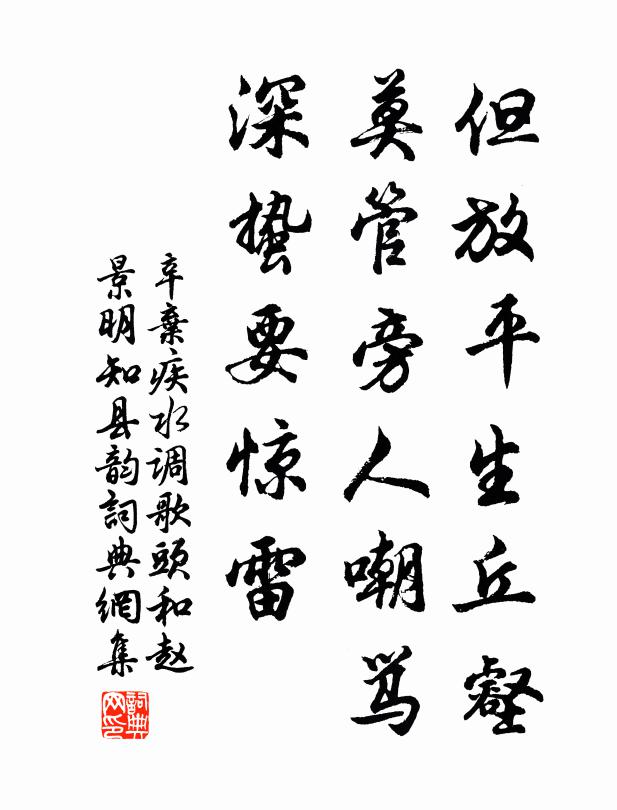 但放平生丘壑
莫管旁人嘲骂
深蛰要惊雷
辛棄疾水调歌頭和赵
景明知县韵詞典網集
詞典
网印